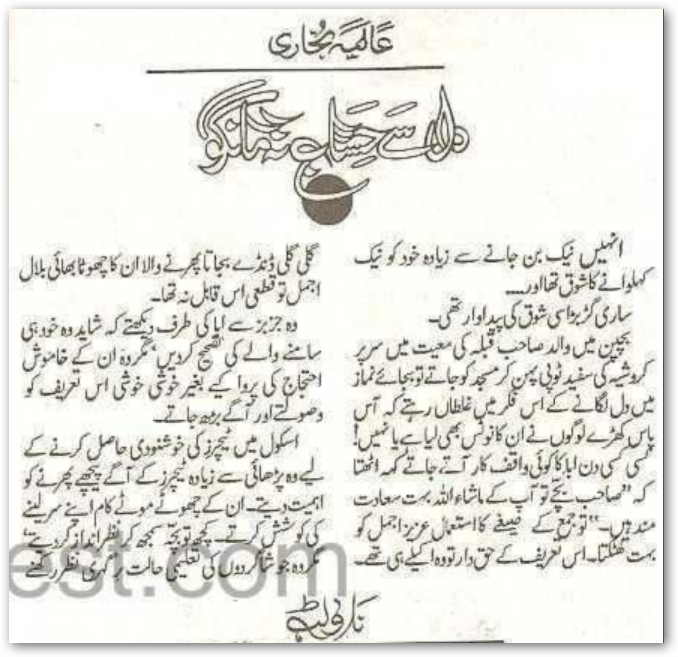 عالیہ بخاری
دل سے حساب نہ مانگو
انہیں نیک بن جانے سے زیادہ خود کو نیک
کہلوانے کا شوق تھا اور.....
ساری گڑبڑ اسی شوق کی پیداوار تھی۔
بچپن میں والد صاحب قبلہ کی معیت میں سر پر
کروشیہ کی سفید ٹوپی پہن کر مسجد کو جاتے تو بجائے نماز
میں دل لگانے کے اس فکر میں غلطاں رہتے کہ آس
پاس کھڑے لوگوں نے ان کا نوٹس بھی لیا ہے یا نہیں!
کسی کسی دن ابا کا کوئی واقف کار آتے جاتے کہہ اٹھتا
کہ ”صاحب بچے تو آپ کے ماشاء اللہ بہت سعادت
مند ہیں۔“ تو جمع کے صیغے کا استعمال عزیز اجمل کو
بہت کھٹکتا۔ اس تعریف کے حق دار تو وہ اکیلے ہی تھے۔
گلی گلی ڈنڈے بجاتا پھرنے والا ان کا چھوٹا بھائی بلال
اجمل تو قطعی اس قابل نہ تھا۔
وہ جزبز سے ابا کی طرف دیکھتے کہ شاید وہ خود ہی
سامنے والے کی تصحیح کردیں‘ مگر وہ ان کے خاموش
احتجاج کی پروا کیے بغیر خوشی خوشی اس تعریف کو
وصولتے اور آگے بڑھ جاتے۔
اسکول میں ٹیچرز کی خوشنودی حاصل کرنے کے
لیے وہ پڑھائی سے زیادہ ٹیچرز کے آگے پیچھے پھرنے کو
اہمیت دیتے۔ ان کے چھوٹے موٹے کام اپنے سر لینے
کی کوشش کرتے۔ کچھ تو بچہ سمجھ کر نظر انداز کر دیتے‘
مگر وہ جو شاگردوں کی تعلیمی حالت پر گہری نظر رکھتے
ناولٹ
est.com